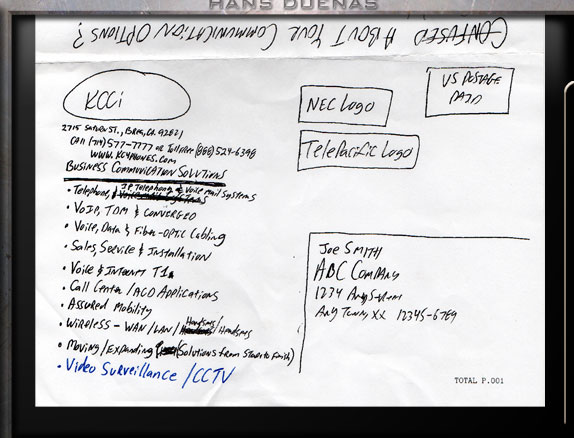 HANS DUENAS
CONFUSED ABOUT YOUR COMMUNICATION OPTIONS?
KCCi
2715 SATURN ST., BREA, CA. 92821
CAll (714) 577-7777 or Tollfree (866) 524-6398
WWW.KC4PHONES.COM
BUSINESS COMMUNICATION SOLUTIONS
• Telephone, IP Telephony & Voice Mail Systems
• VoIP, TDM & CONVERGED
• Voice, Data & Fiber-Optic Cabling
• Sales, Service & Installation
• Voice & Internet T1s
• Call Center/ACD Applications
• Assured Mobility
• WIRELESS - WAN/LAN/Handsets
• Moving/Expanding (Solutions from Start to Finish)
• Video Surveillance/CCTV
NEC Logo
TelePacific Logo
US POSTAGE
PAID
Joe SMITH
ABC Company
1234 Any System
Any Town, XX 12345-6789
TOTAL P.001